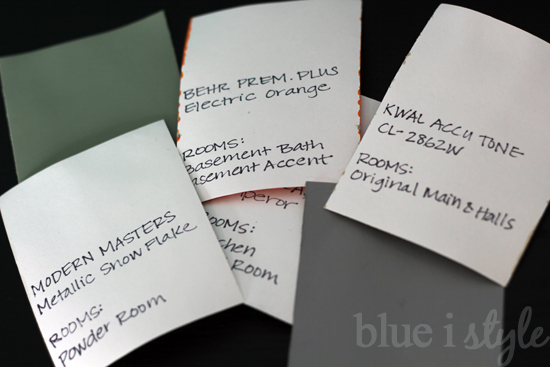 BEHR PREM. PLUS
Electric Orange
ROOMS:
Basement Bath
Basement Accent
KWAL ACCU TONE
CL-2862W
ROOMS:
Original Main & Halls
MODERN MASTERS
Metallic Snow Flake
ROOMS:
Powder Room
ROOMS:
Room
blue i style